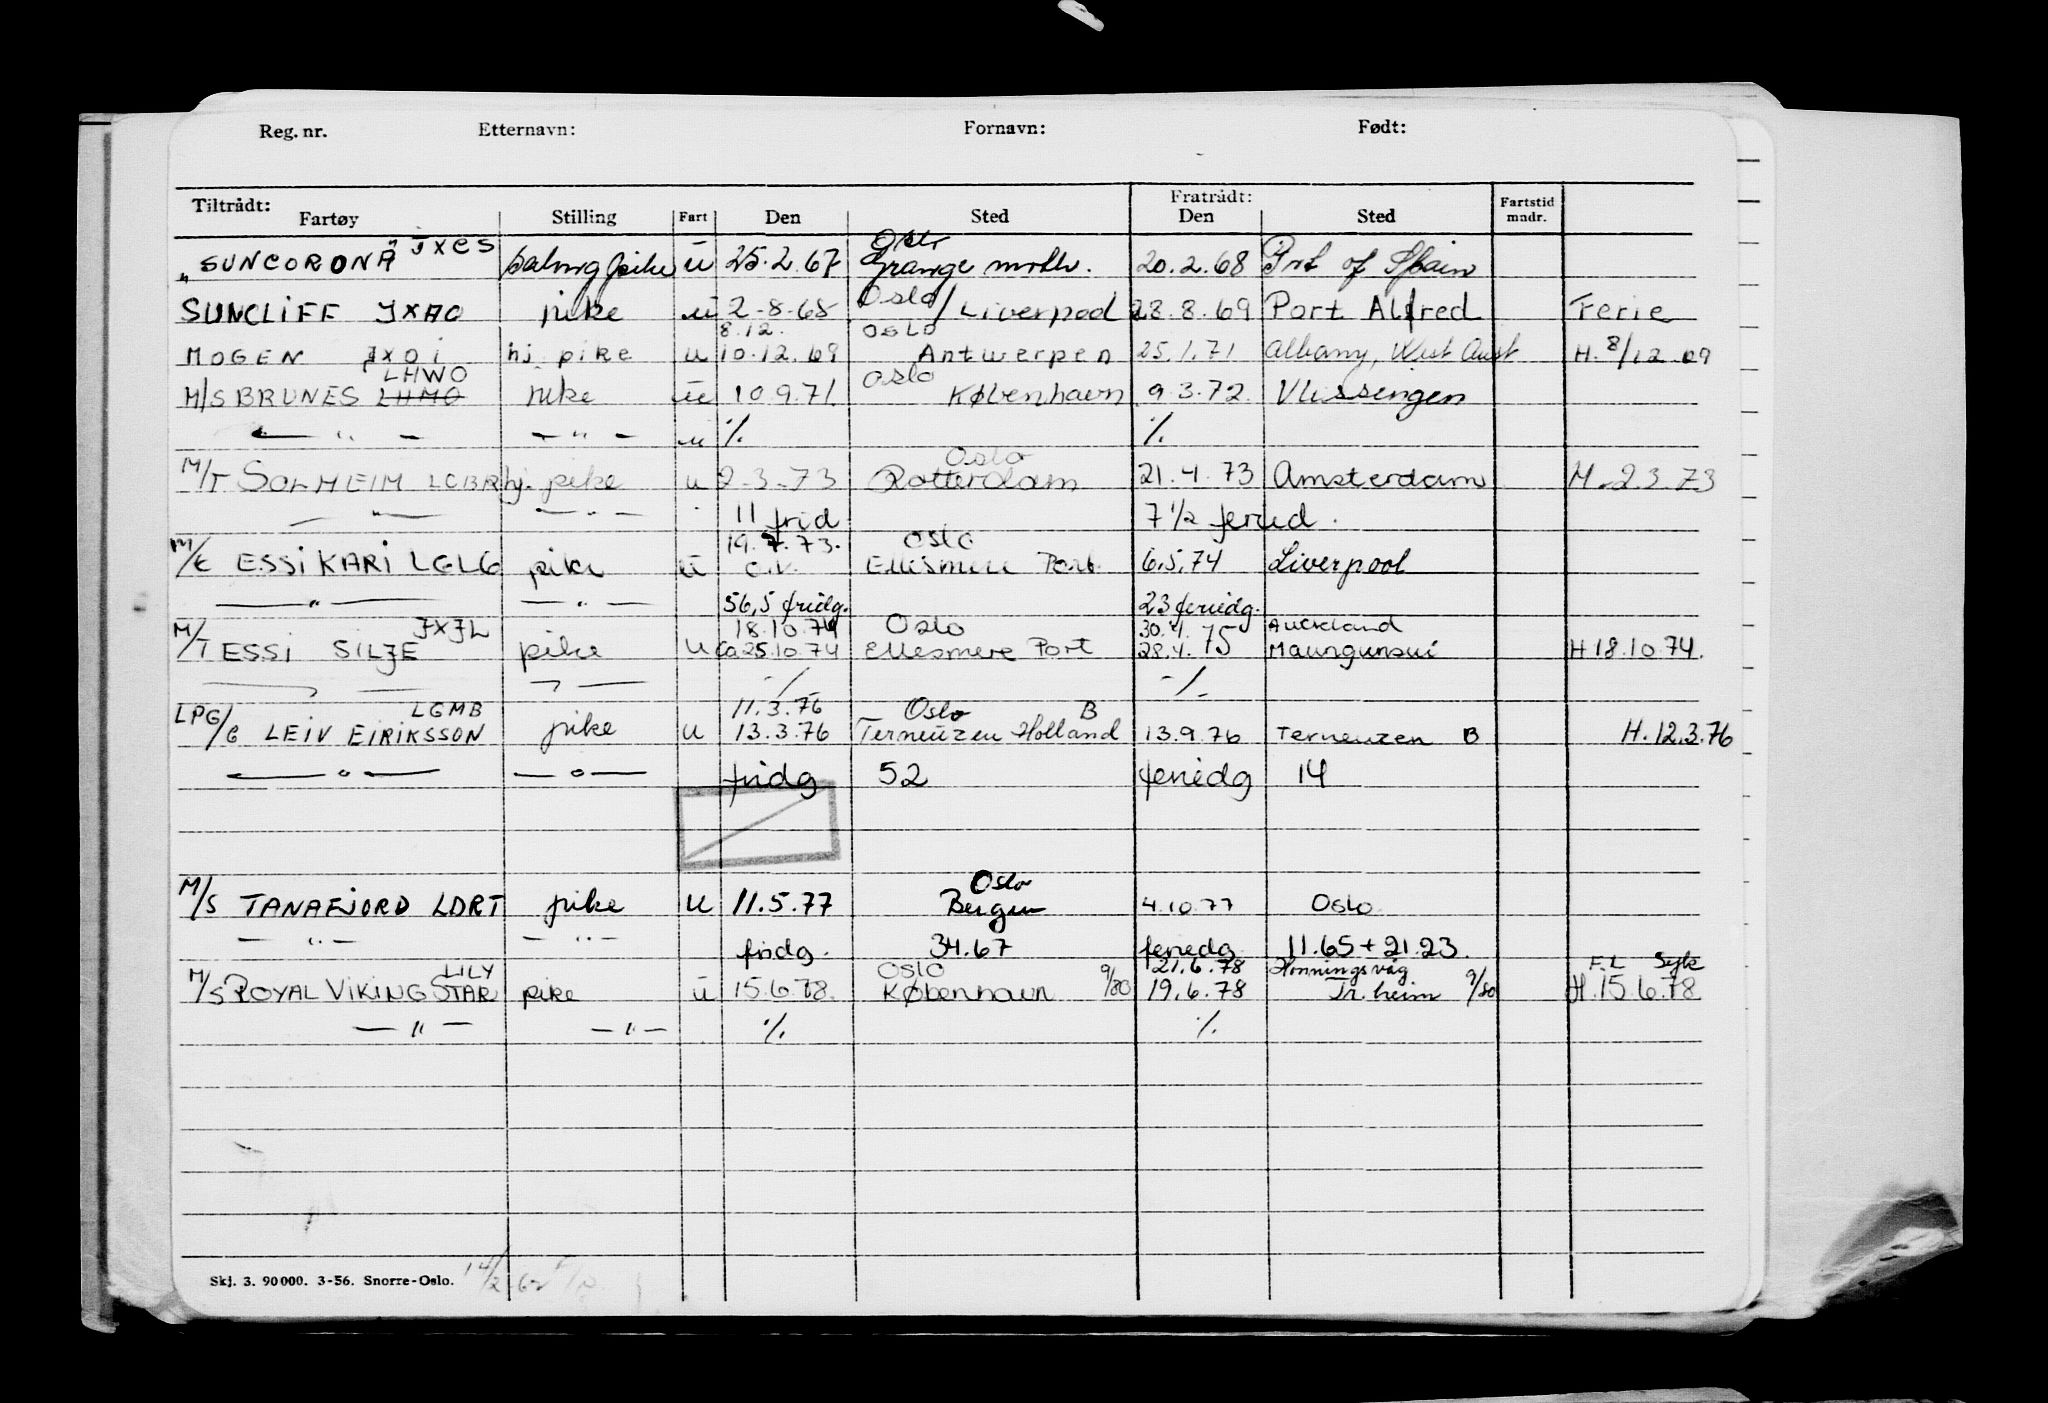 Reg. nr. Etternavn: Fornavn: Født:
Tiltrådt: Fratrådt:
Fartøy Stilling Fart Den Sted Den Sted Fartstid mndr.
JXCS Oslo
"SUNCORONA" salongpike u 25.2.67 Grangemoth. 20.2.68 Prt of Spain
Oslo
SUNCLIFF JXAO pike u 2-8-68 / Liverpool 28.8.69 Port Alfred Ferie
8.12. OSLO
MOGEN JXOi hj. pike u 10.12.69 Antwerpen 25.1.71 Albany, West Aust H. 8/12 69
LHWO Oslo
M/S BRUNES LHMO pike u 10.9.71. København 9.3.72. Vlissengen
— " — — " — u % %
Oslo
M/T SOLHEIM LCBR hj. pike u 2-3-73 Rotterdam 21.4.73 Amsterdam H. 2.3.73
— " — — " — 11 frid 7 1/2 feried.
19.7.73. Oslo
M/C ESSI KARI LGLG pike u o.k. Ellesmere Port. 6.5.74 Liverpool
— " — — " — 56,5 fridg. 23 feriedg.
JXJL 18.10.74 Oslo 30.4. Auckland
M/T ESSI SILJE pike u Ca 25.10.74 Ellesmere Port 28.4.75 Maungunui H 18.10.74.
% %
LGMB 11.3.76 Oslo B
LPG/C LEIV EIRIKSSON pike u 13.3.76 Terneuzen Holland 13.9.76 Terneuzen B H. 12.3.76
— " — — " — fridg 52 feriedg 14
Oslo
M/S TANAFJORD LDRT pike u 11.5.77 Bergen 4.10.77 Oslo
— " — — " — fridg. 34.67 feriedg 11.65 + 21.23.
LILY Oslo 9/80 21.6.78 Honningsvåg F.L Sejle
M/S ROYAL VIKING STAR pike u 15.6.78. København 19.6.78 Tr.heim 9/80 H. 15.6.78
— " — — " — % %
Skj. 3. 90 000. 3-56. Snorre-Oslo.